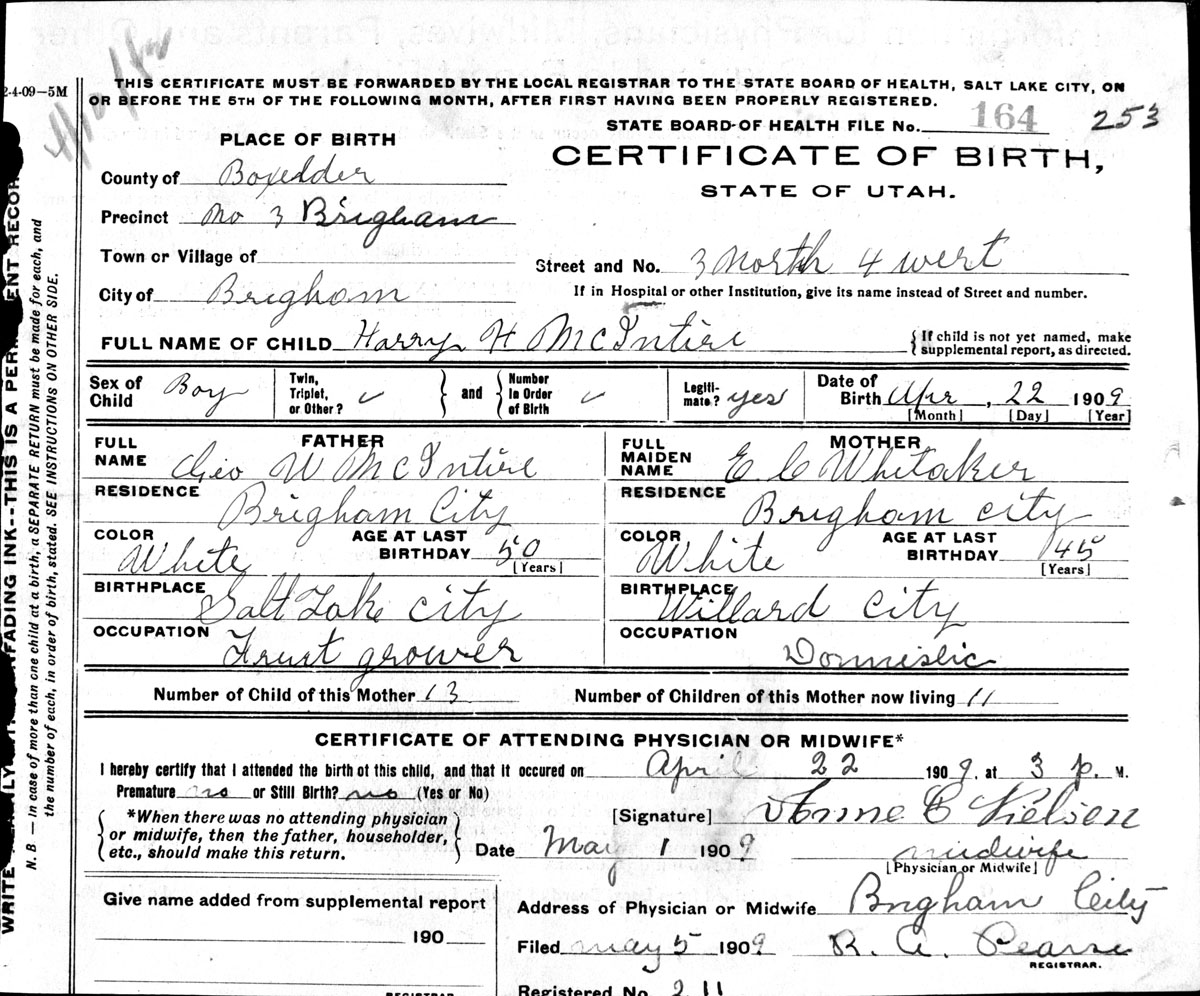 2-4-09—5M
THIS CERTIFICATE MUST BE FORWARDED BY THE LOCAL REGISTRAR TO THE STATE BOARD OF HEALTH, SALT LAKE CITY, ON
OR BEFORE THE 5TH OF THE FOLLOWING MONTH, AFTER FIRST HAVING BEEN PROPERLY REGISTERED.
STATE BOARD OF HEALTH FILE No. 164 253
PLACE OF BIRTH
CERTIFICATE OF BIRTH,
STATE OF UTAH.
County of Boxelder
Precinct No 3 Brigham
Town or Village of
Street and No. 3 North 4 west
City of Brigham
If in Hospital or other Institution, give its name instead of Street and number.
FULL NAME OF CHILD Harry H McIntire
{If child is not yet named, make
supplemental report, as directed.
Sex of Child Boy Twin, Triplet, or Other? ✓ } and { Number In Order of Birth ✓ Legiti-mate? yes Date of Birth Apr, 22 1909
[Month] [Day] [Year]
FATHER MOTHER
FULL NAME Geo W McIntire FULL MAIDEN NAME E C Whitaker
RESIDENCE Brigham City RESIDENCE Brigham city
COLOR White AGE AT LAST BIRTHDAY 50 [Years] COLOR White AGE AT LAST BIRTHDAY 45 [Years]
BIRTHPLACE Salt Lake City BIRTHPLACE Willard City
OCCUPATION Fruit grower OCCUPATION Dommistic
Number of Child of this Mother 13 Number of Children of this Mother now living 11
CERTIFICATE OF ATTENDING PHYSICIAN OR MIDWIFE*
I hereby certify that I attended the birth of this child, and that it occured on April 22 1909, at 3 p. M.
Premature no or Still Birth? no (Yes or No)
*When there was no attending physician
or midwife, then the father, householder,
etc., should make this return.
[Signature] Anne C Nielsen
Date May 1 1909 midwife
[Physician or Midwife]
Give name added from supplemental report
190
Address of Physician or Midwife Brigham City
Filed may 5 1909 R. A. Pearse
REGISTRAR.
REGISTRAR
Registered No. 211
N. B. — In case of more than one child at a birth, a SEPARATE RETURN must be made for each, and
the number of each, in order of birth, stated. SEE INSTRUCTIONS ON OTHER SIDE.
WRITE FADING INK--THIS IS A PERMANENT RECORD